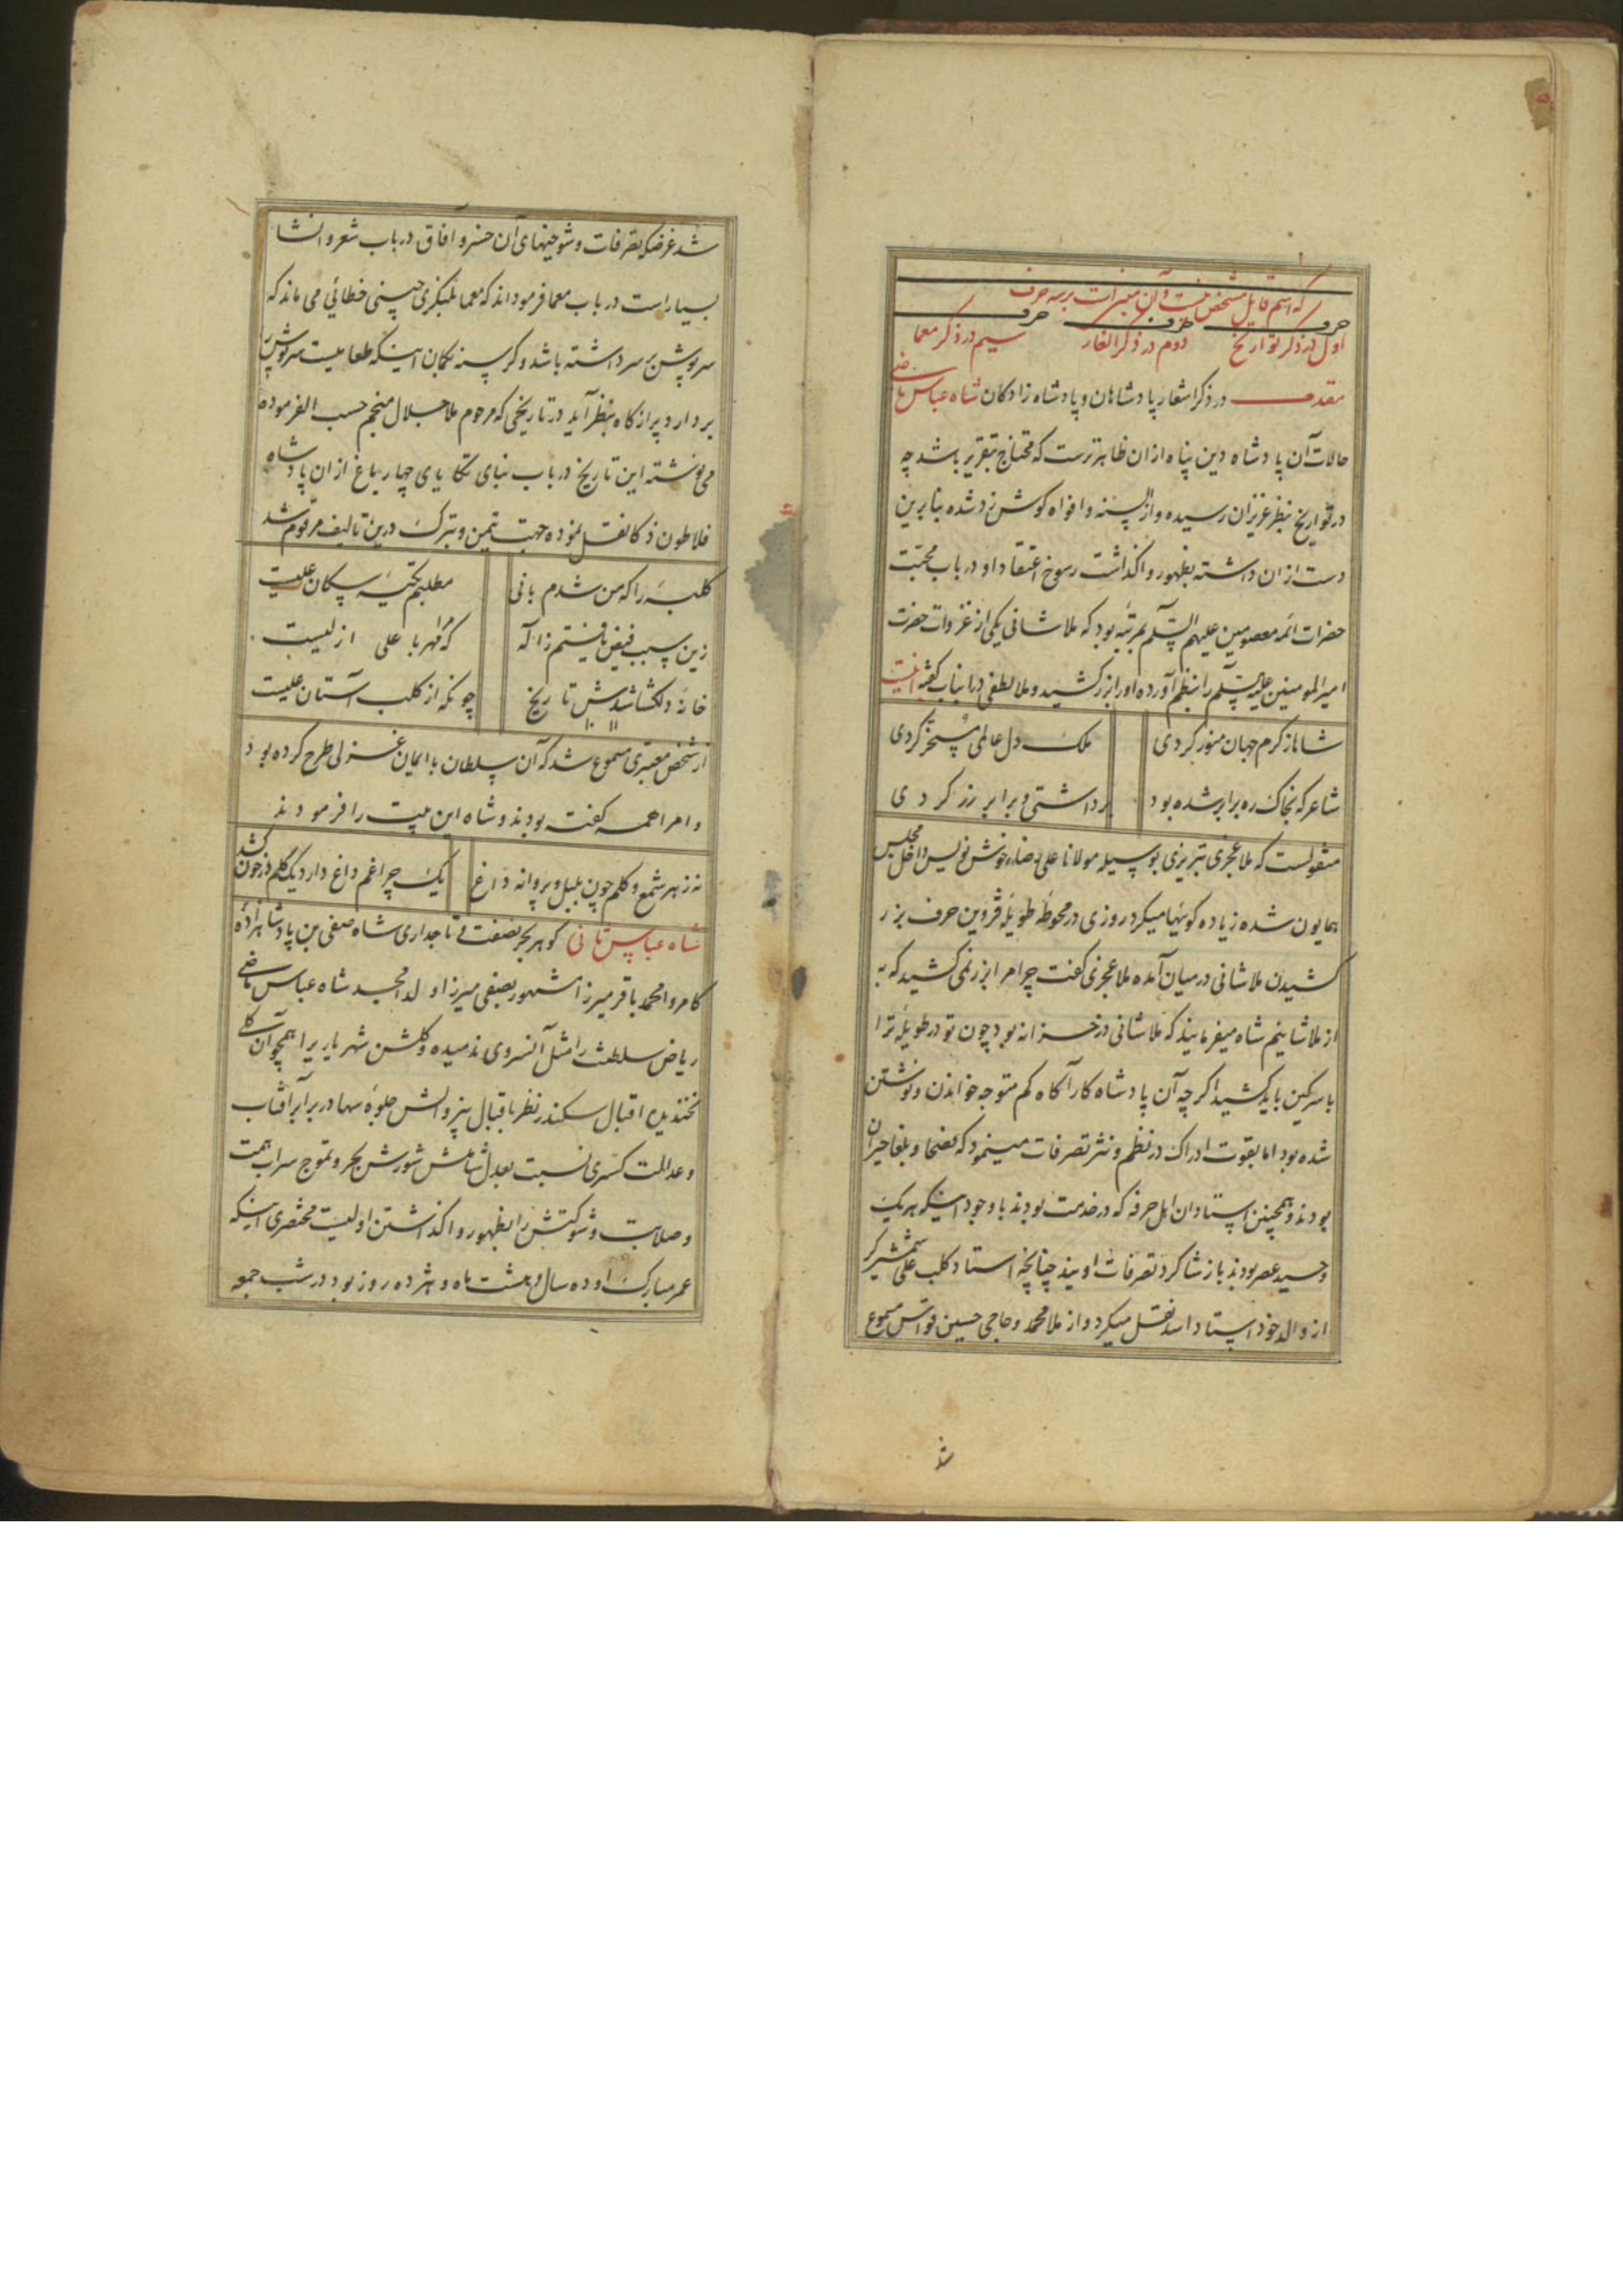 که اسم قایل مشخص نیست و آن مبنی است بر سه حرف
حرف حرف حرف
اول در ذکر تواریخ دوم در ذکر الغاز سیم در ذکر معما
مقدمه در ذکر اشعار پادشاهان و پادشاه زادکان شاه عباس ماضی
حالات آن پادشاه دین پناه از ان ظاهرترست که محتاج بتقریر باشد چه
در تواریخ بنظر عزیزان رسیده و از السنه و افواه کوش زد شده بنابرین
دست از ان داشته بظهور واکذاشت رسوخ اعتقاد او در باب محبت
حضرات ائمه معصومین علیهم السلم بمرتبه بود که ملا شانی یکی از غزوات حضرت
امیرالمومنین علیه السلم را بنظم آورده او را بزر کشید و ملا لطفی در انباب کفته اینست
شاها ز کرم جهان منور کردی ملک دل عالمی مسخر کردی
شاعر که بخاک ره برابر شده بود برداشتی و برابر زر کردی
منقولست که ملا عجزی تبریزی بوسیله مولانا علی رضاء خوش نویس داخل مجلس
همایون شده زیاده کوئیها میکرد روزی در محوطه طویله قزوین حرف بزر
کشیدن ملا شانی در میان آمده ملا عجزی کفت چرا مرا بزر نمی کشید که به
از ملا شانیم شاه میفرمایند که ملا شانی در خزانه بود چون تو در طویله ترا
با سرکین باید کشید اکرچه آن پادشاه کارآکاه کم متوجه خواندن و نوشتن
شده بود اما بقوت ادراک در نظم و نثر تصرفات مینمود که فصحا و بلغا حیران
بودند و همچنین استادان اهل حرفه که در خدمت بودند با وجود اینکه هر یک
وحید عصر بودند باز شاکرد تصرفات اویند چنانچه استاد کلب علی شمشیرکر
از والد خود استاد اسد نقل میکرد و از ملا محمد و حاجی حسین قواس مسموع
شد
شد غرض که تصرفات و شوخیهای آن خسرو آفاق در باب شعر و انشا
بسیار است در باب معما فرموده اند که معما بلنکری چینی خطائی می ماند که
سرپوش بر سر داشته باشد و کرسنه بکمان اینکه طعامیست سرپوش را
بردارد پر از کاه بنظر آید در تاریخی که مرحوم ملا جلال منجم حسب الفرموده
می نوشته این تاریخ در باب بنای تکایای چهار باغ از ان پادشاه
فلاطون ذکا نقل نموده جهت تیمن و تبرک درین تالیف مرقوم شد
کلبه را که من شدم بانی مطلبم تکیه سکان علیست
زین سبب فیض یافتم ز اله که مرا مهر با علی ازلیست
خانه دلکشا شدش تاریخ چونکه از کلب آستان علیست
از شخص معتبری مسموع شد که آن سلطان با ایمان غزلی طرح کرده بود
و امرا همه کفته بودند و شاه این بیت را فرمودند
نه ز بهر شمع و کلم چون بلبل و پروانه داغ یک چراغم داغ دارد یک کلم در خون کشد
شاه عباس ثانی کوهر بحر نصفت و تاجداری شاه صفی بن پادشاهزاده
کامروا محمد باقر میرزا مشهور بصفی میرزا ولد امجد شاه عباس ماضی
ریاض سلطنت را مثل آن سروی ندمیده و کلشن شهریاریرا همچو آن کلی
نخندیده اقبال سکندر نظر باقبال بیزوالش جلوه سها در برابر آفتاب
و عدالت کسری نسبت بعدل شاملش شورش بحر و تموج سراب همت
و صلابت و شوکتش را بظهور واکذاشتن اولیست مختصری اینکه
عمر مبارک او ده سال و هشت ماه و هژده روز بود در شب جمعه